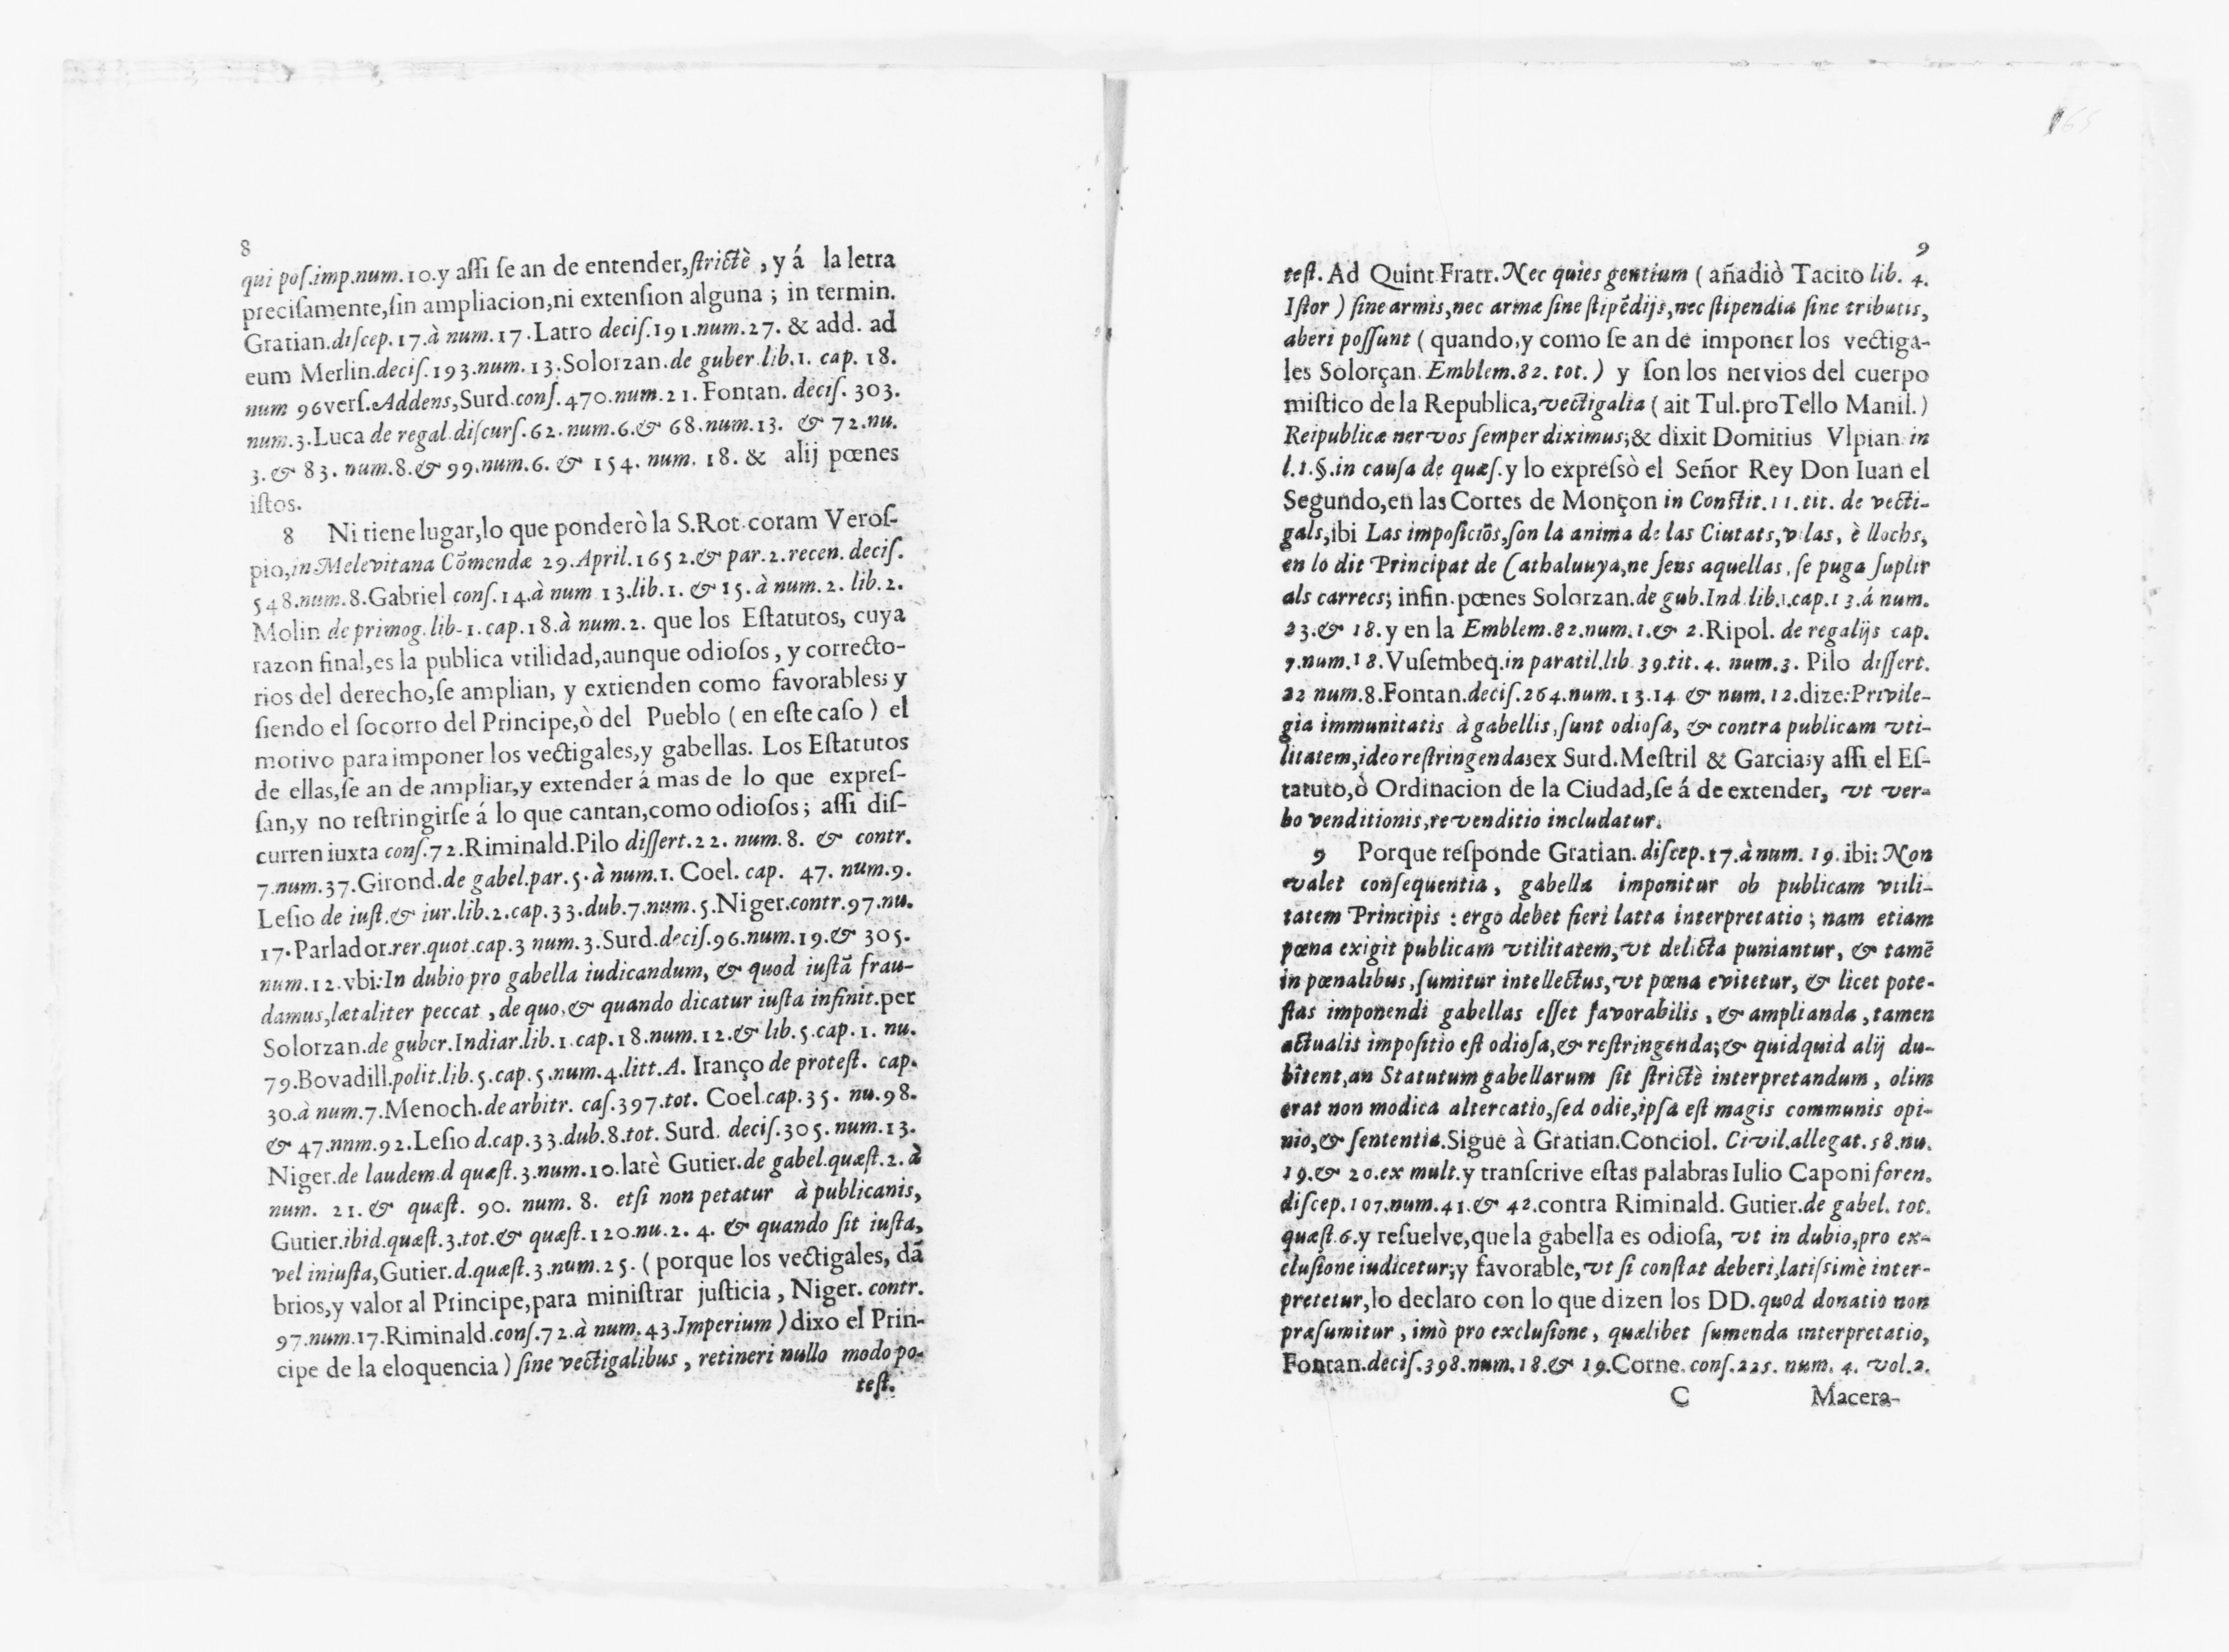 8
qui poſ.imp.num.10.y aſſi ſe an de entender,ſtrictè, y á la letra
preciſamente,ſin ampliacion,ni extenſion alguna; in termin.
Gratian.diſcep.17.à num.17.Latro deciſ.191.num.27. & add. ad
eum Merlin.deciſ.193.num.13.Solorzan.de guber.lib.1. cap. 18.
num 96verſ.Addens,Surd.conſ.470.num.21.Fontan. deciſ. 303.
num.3.Luca de regal.diſcurſ.62.num.6.& 68.num.13. & 72.nu.
3.& 83. num.8.& 99.num.6. & 154. num. 18. & alij pœnes
iſtos.
8 Ni tiene lugar,lo que ponderò la S.Rot.coram Veroſ-
pio,in Melevitana Cõmendæ 29.April.1652.& par.2.recen. deciſ.
548.num.8.Gabriel conſ.14.à num 13.lib.1. & 15. à num.2. lib.2.
Molin de primog.lib-1.cap.18.à num.2. que los Eſtatutos, cuya
razon final,es la publica vtilidad,aunque odioſos, y correcto-
rios del derecho,ſe amplian, y extienden como favorables; y
ſiendo el ſocorro del Principe,ò del Pueblo (en eſte caſo) el
motivo para imponer los vectigales,y gabellas. Los Eſtatutos
de ellas,ſe an de ampliar,y extender á mas de lo que expreſ-
ſan,y no reſtringirſe á lo que cantan,como odioſos; aſſi diſ-
curren iuxta conſ.72.Riminald.Pilo diſſert.22. num.8. & contr.
7.num.37.Girond.de gabel.par.5.à num.1. Coel. cap. 47. num.9.
Leſio de iuſt.& iur.lib.2.cap.33.dub.7.num.5.Niger.contr.97.nu.
17.Parlador.rer.quot.cap.3 num.3.Surd.deciſ.96.num.19.& 305.
num.12.vbi:In dubio pro gabella iudicandum, & quod iuſtã frau-
damus,lætaliter peccat, de quo,& quando dicatur iuſta infinit.per
Solorzan.de guber.Indiar.lib.1.cap.18.num.12.& lib.5.cap.1. nu.
79.Bovadill.polit.lib.5.cap.5.num.4.litt.A. Iranço de proteſt. cap.
30.à num.7.Menoch.de arbitr. caſ.397.tot. Coel.cap.35. nu.98.
& 47.nnm.92.Leſio d.cap.33.dub.8.tot. Surd. deciſ.305.num.13.
Niger.de laudem.d quæſt.3.num.10.latè Gutier.de gabel.quæſt.2.à
num. 21.& quæſt. 90. num. 8. etſi non petatur à publicanis,
Gutier.ibid.quæſt.3.tot.& quæſt.120.nu.2. 4. & quando ſit iuſta,
vel iniuſta,Gutier.d.quæſt.3.num.25.(porque los vectigales, dã
brios,y valor al Principe,para miniſtrar juſticia, Niger. contr.
97.num.17.Riminald.conſ.72.à num.43.Imperium) dixo el Prin-
cipe de la eloquencia) ſine vectigalibus, retineri nullo modo po-
teſt.
9
teſt. Ad Quint Fratr.Nec quies gentium (añadiò Tacito lib. 4.
Iſtor) ſine armis,nec armæ ſine ſtipẽdijs,nec ſtipendia ſine tributis,
aberi poſſunt (quando,y como ſe an de imponer los vectiga-
les Solorçan. Emblem.82. tot.) y ſon los nervios del cuerpo
miſtico de la Republica,vectigalia (ait Tul.pro Tello Manil.)
Reipublicæ nervos ſemper diximus;& dixit Domitius Vlpian in
l.1.§.in cauſa de quæſ.y lo expreſsò el Señor Rey Don Iuan el
Segundo,en las Cortes de Monçon in Conſtit.11.tit. de vecti-
gals,ibi Las impoſiciõs,ſon la anima de las Ciutats,vilas, è llochs,
en lo dit Principat de Cathaluuya,ne ſens aquellas, ſe puga ſuplir
als carrecs; infin.pœnes Solorzan.de gub.Ind.lib.1.cap.13.á num.
23.& 18.y en la Emblem.82.num.1.& 2.Ripol. de regalijs cap.
7.num.18.Vuſembeq.in paratil.lib 39.tit.4. num.3. Pilo diſſert.
22 num.8.Fontan.deciſ.264.num.13.14 & num.12.dize:Privile-
gia immunitatis à gabellis,ſunt odioſa, & contra publicam vti-
litatem,ideo reſtringenda;ex Surd.Meſtril & Garcia;y aſſi el Eſ-
tatuto,ò Ordinacion de la Ciudad,ſe á de extender, vt ver-
bo venditionis,revenditio includatur.
9 Porque reſponde Gratian.diſcep.17.à num. 19.ibi: Non
valet conſequentia, gabella imponitur ob publicam vtili-
tatem Principis : ergo debet fieri latta interpretatio; nam etiam
pœna exigit publicam vtilitatem,vt delicta puniantur, & tamẽ
in pœnalibus,ſumitur intellectus,vt pœna evitetur, & licet pote-
ſtas imponendi gabellas eſſet favorabilis, & amplianda, tamen
actualis impoſitio eſt odioſa,& reſtringenda;& quidquid alij du-
bitent,an Statutum gabellarum ſit ſtrictè interpretandum, olim
erat non modica altercatio,ſed odie,ipſa eſt magis communis opi-
nio,& ſententia.Sigue à Gratian.Conciol. Civil.allegat.58.nu.
19.& 20.ex mult.y tranſcrive eſtas palabras Iulio Caponi foren.
diſcep.107.num.41.& 42.contra Riminald. Gutier.de gabel. tot.
quæſt.6.y reſuelve,que la gabella es odioſa, vt in dubio,pro ex-
cluſione iudicetur;y favorable,vt ſi conſtat deberi,latiſsimè inter-
pretetur,lo declaro con lo que dizen los DD.quod donatio non
præſumitur, imò pro excluſione, quælibet ſumenda interpretatio,
Fontan.deciſ.398.num.18.& 19.Corne. conſ.225. num. 4. vol.2.
C Macera-